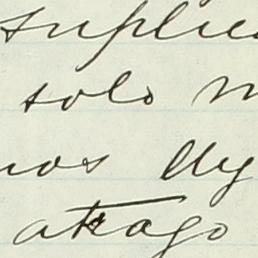 suplic
solo m
nos lly
atrago